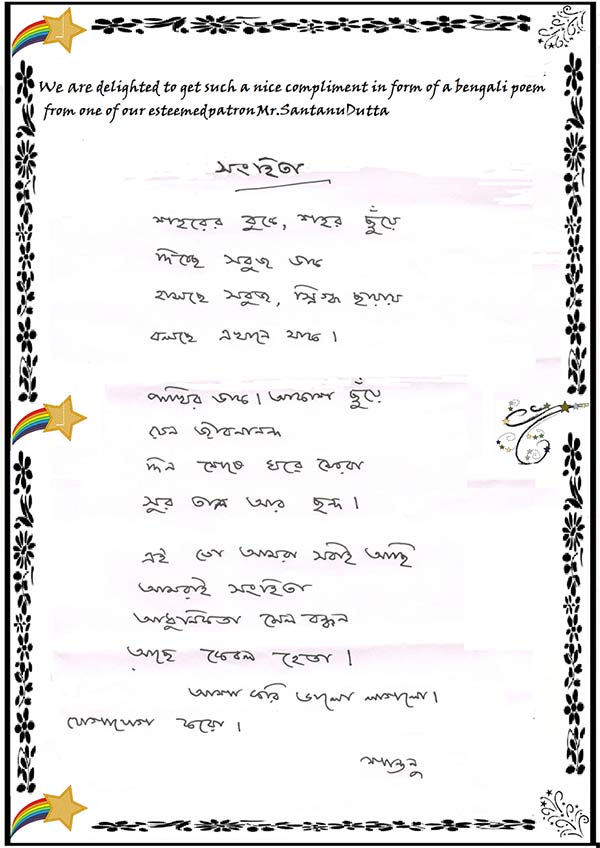 We are delighted to get such a nice compliment in form of a bengali poem
from one of our esteemedpatronMr.SantanuDutta
সংহিতা
শহরের বুকে, শহর ছুঁয়ে
দিচ্ছে সবুজ ডাক
হাসছে সবুজ, স্নিগ্ধ ছায়ায়
বলছে এখানে থাক।
পাখির ডাকে। আকাশ ছুঁয়ে
যেন জীবনানন্দ
দিন শেষে ঘরে ফেরা
সুর তাল আর ছন্দ।
এই তো আমরা সবাই আছি
আমরাই সংহিতা
আধুনিকতা মেল বন্ধন
আছে কেবল হেতা।
আশা করি ভালো লাগলো।
যোগাযোগ করো।
শান্তনু